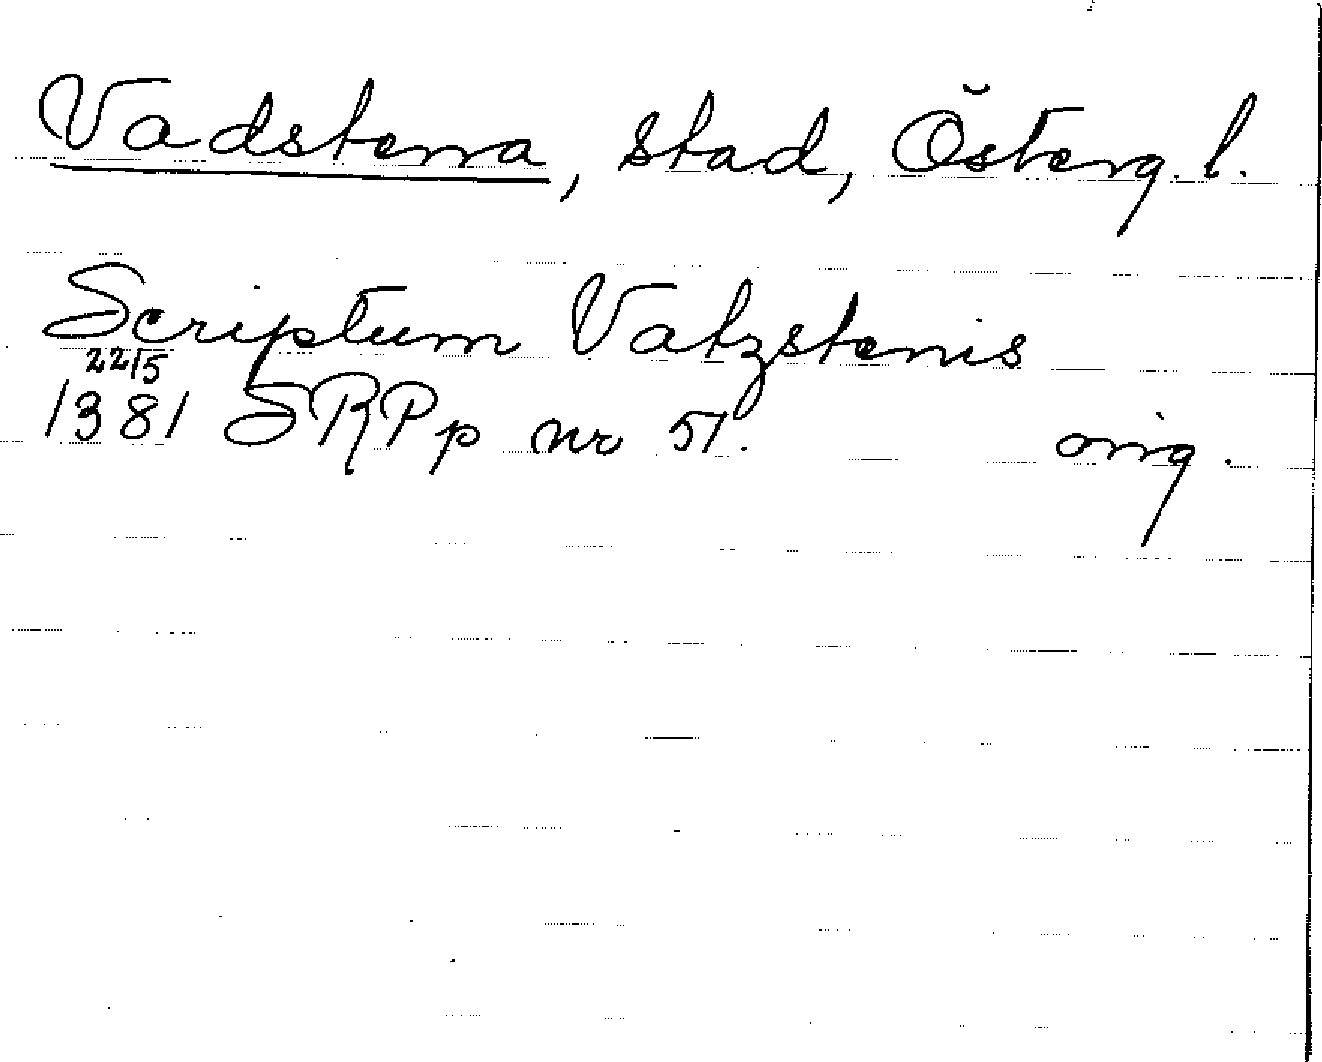 Vadstena, stad, Österg. l.
Scriptum Vatzstenis
22/5
1381 SRPp nr 51. orig.